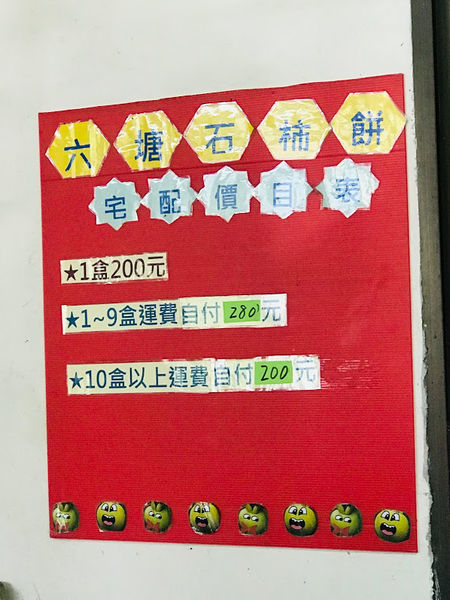 六塘石柿餅
宅配價目表
★1盒200元
★1~9盒運費自付280元
★10盒以上運費自付200元